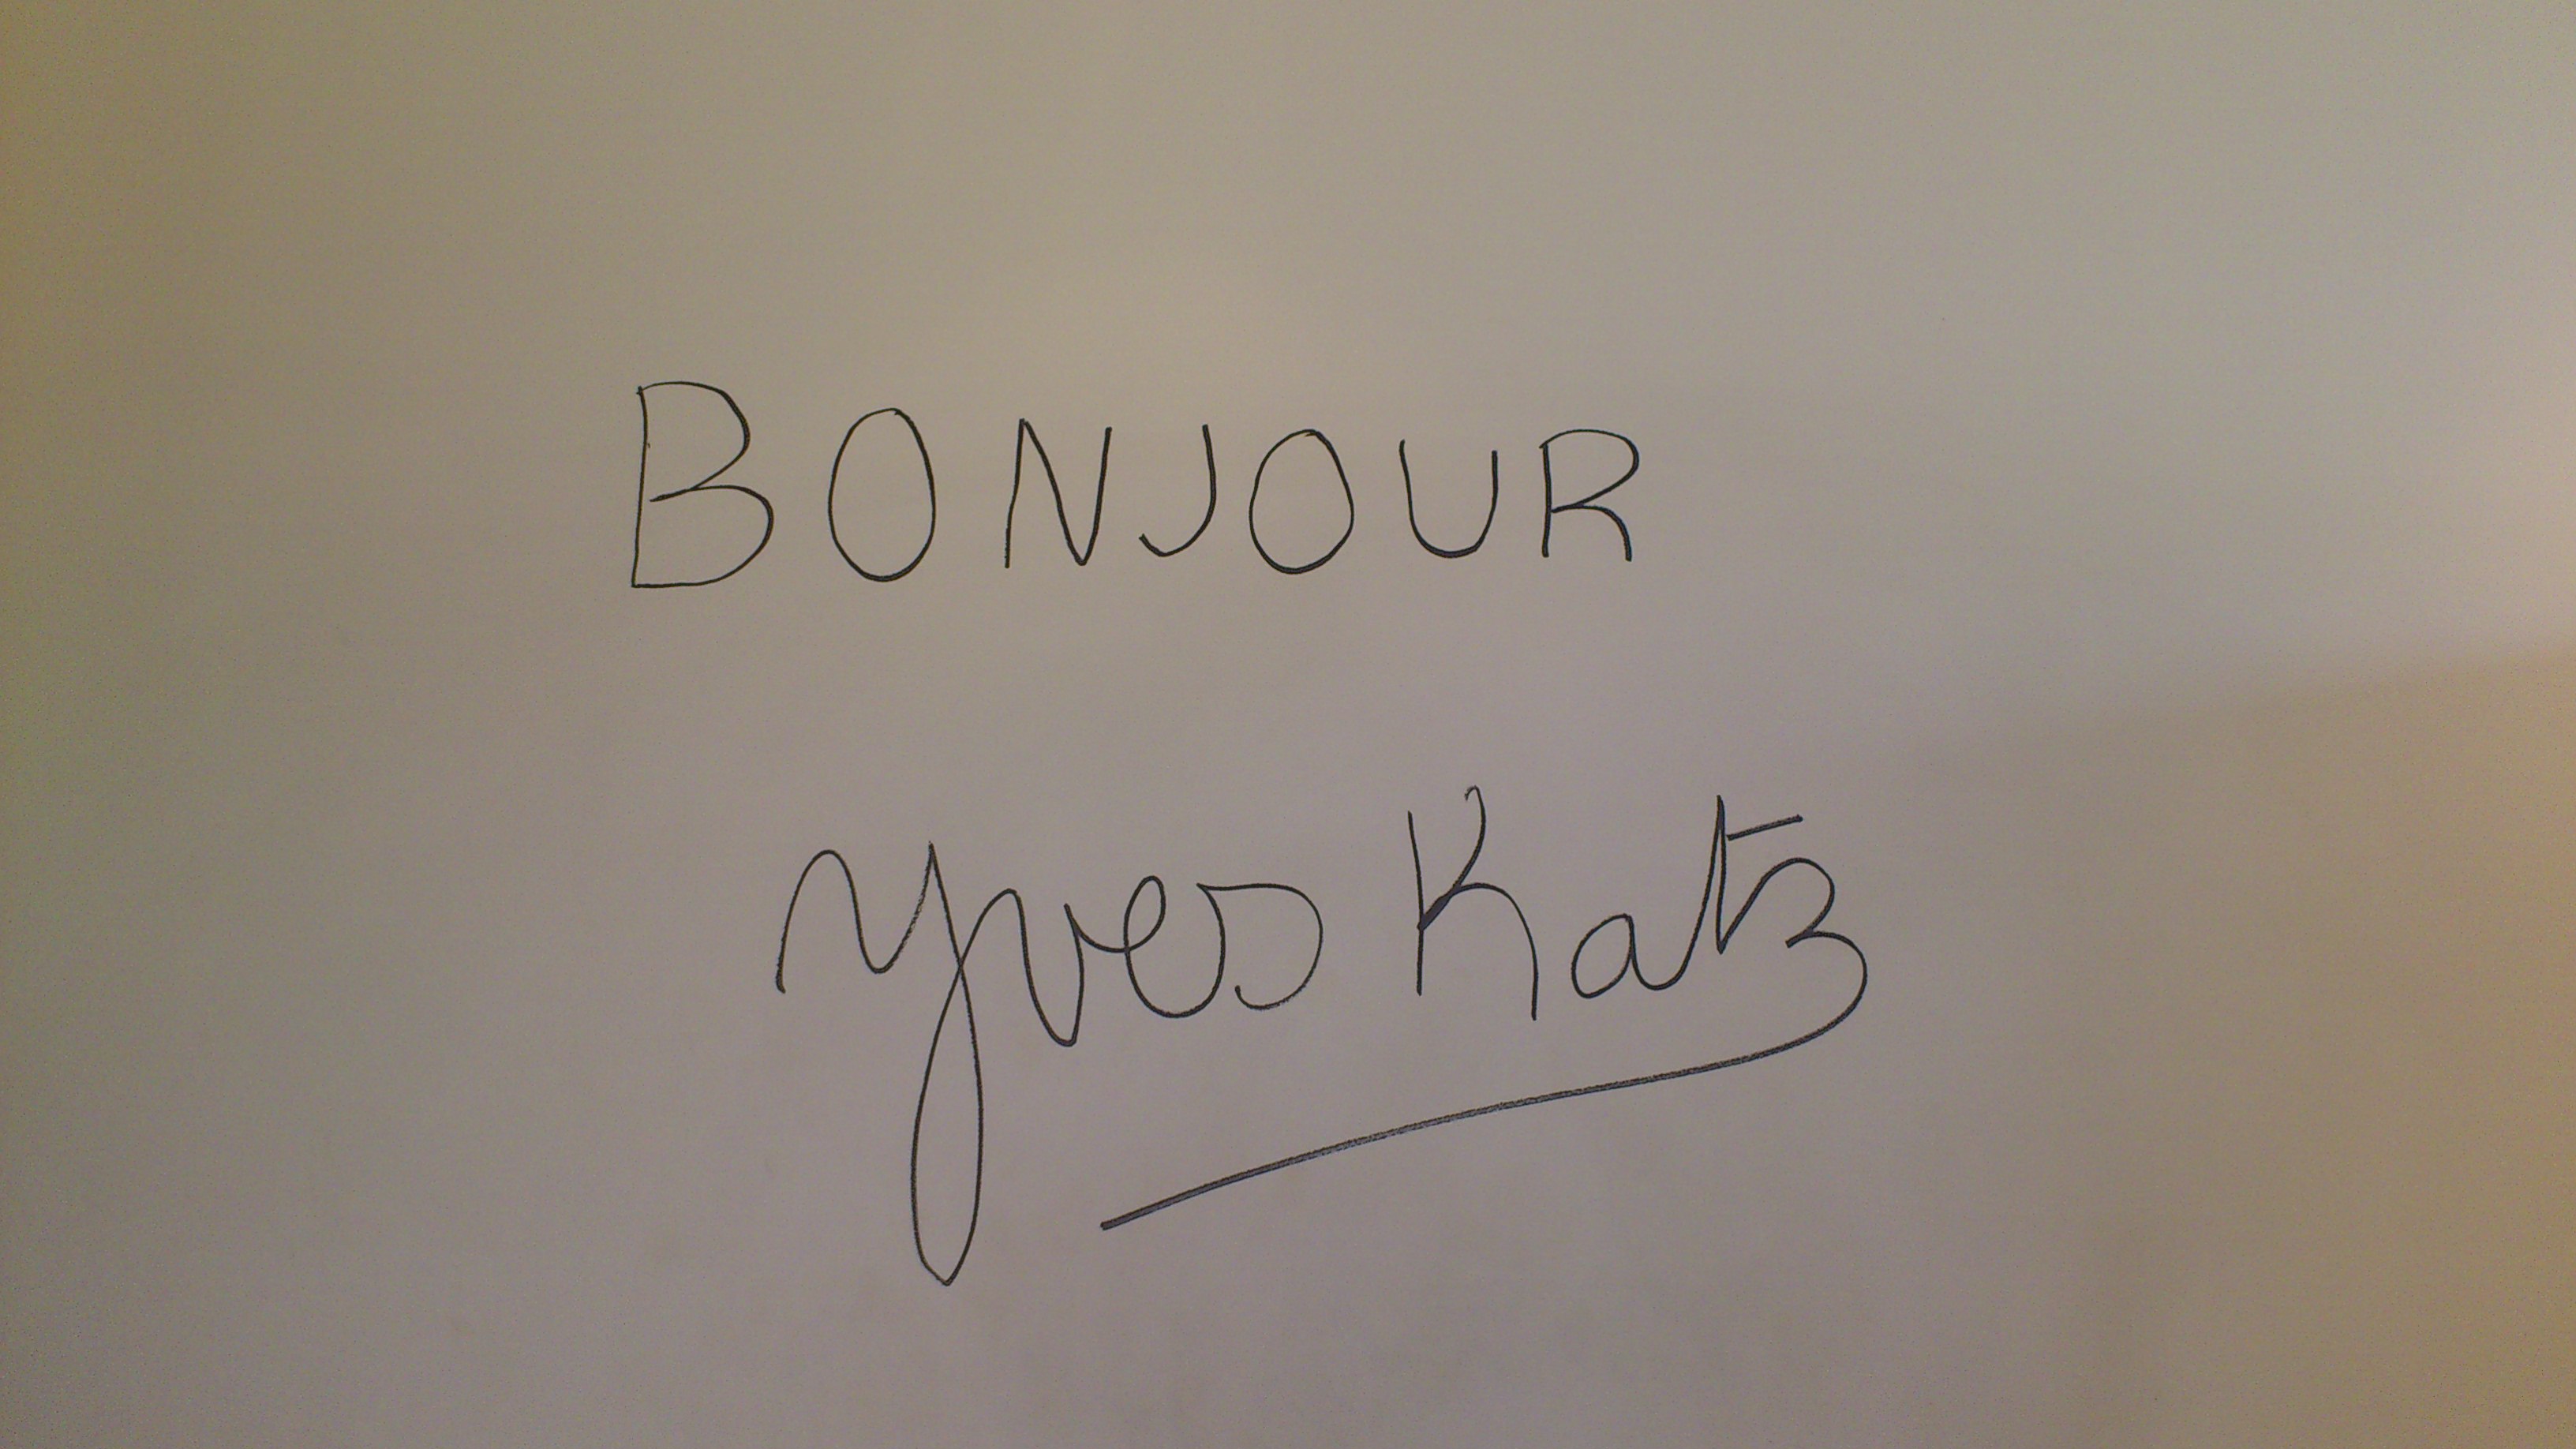 BONJOUR
Yves Katz